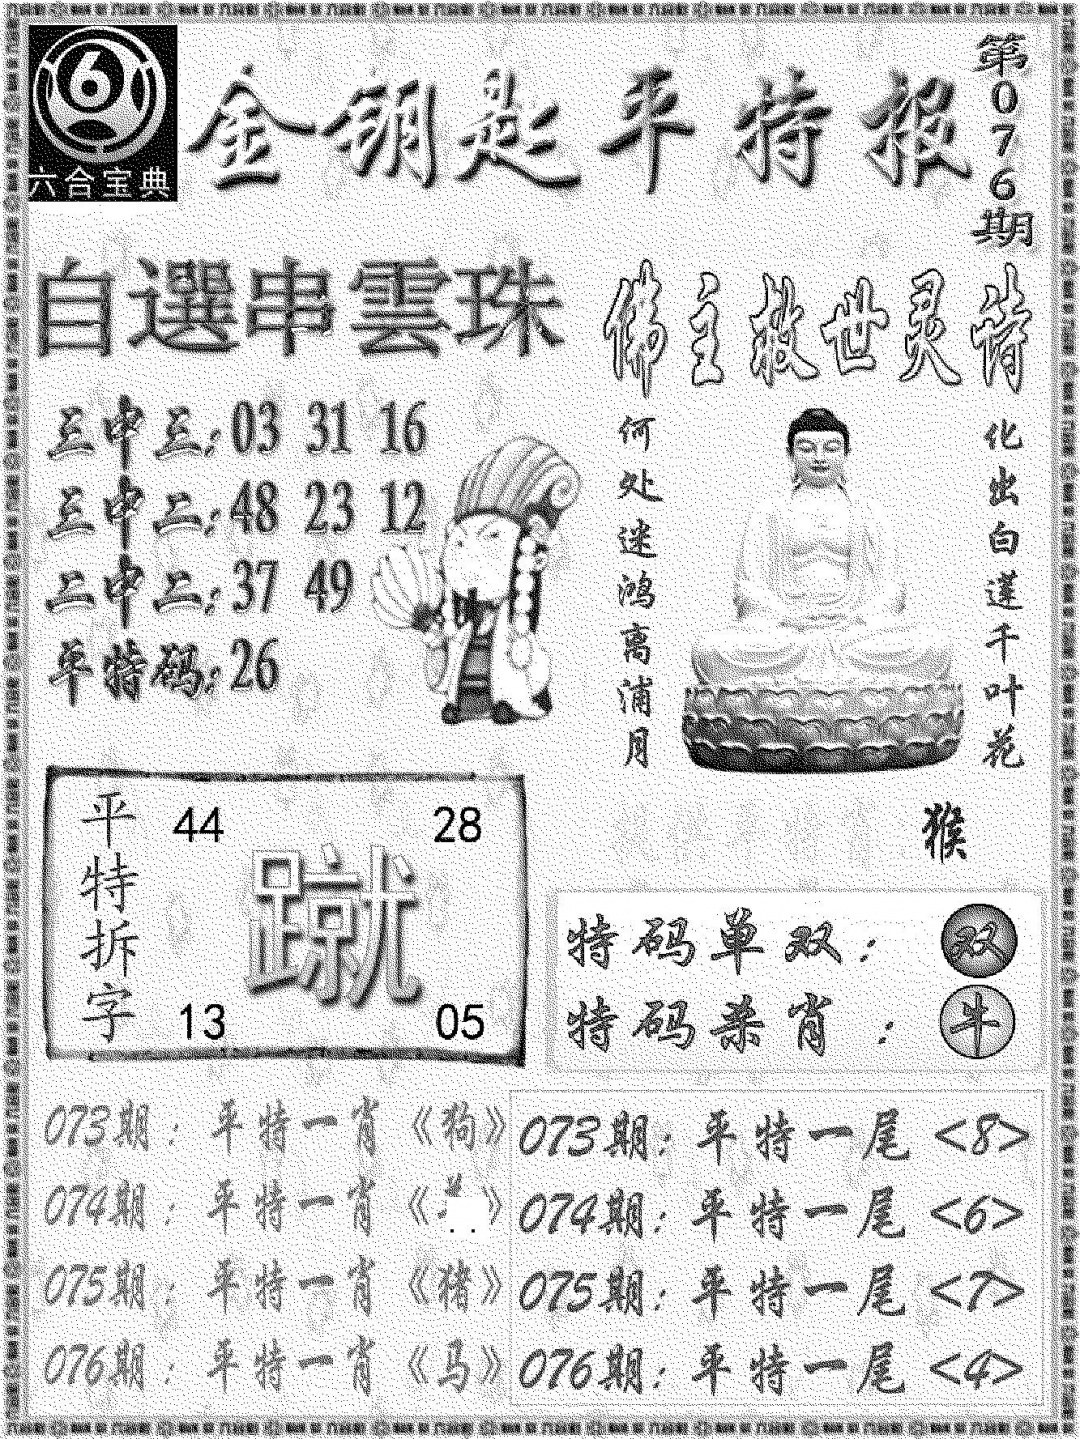 六合宝典
金钥匙平特报
第076期
自選串雲珠
三中三:03 31 16
三中二:48 23 12
二中二:37 49
平特码:26
佛主救世灵诗
何处迷鸿离浦月
化出白莲千叶花
猴
平特拆字
44 28
蹴
13 05
特码单双:双
特码杀肖:牛
073期:平特一肖《狗》
074期:平特一肖《》
075期:平特一肖《猪》
076期:平特一肖《马》
073期:平特一尾<8>
074期:平特一尾<6>
075期:平特一尾<7>
076期:平特一尾<4>